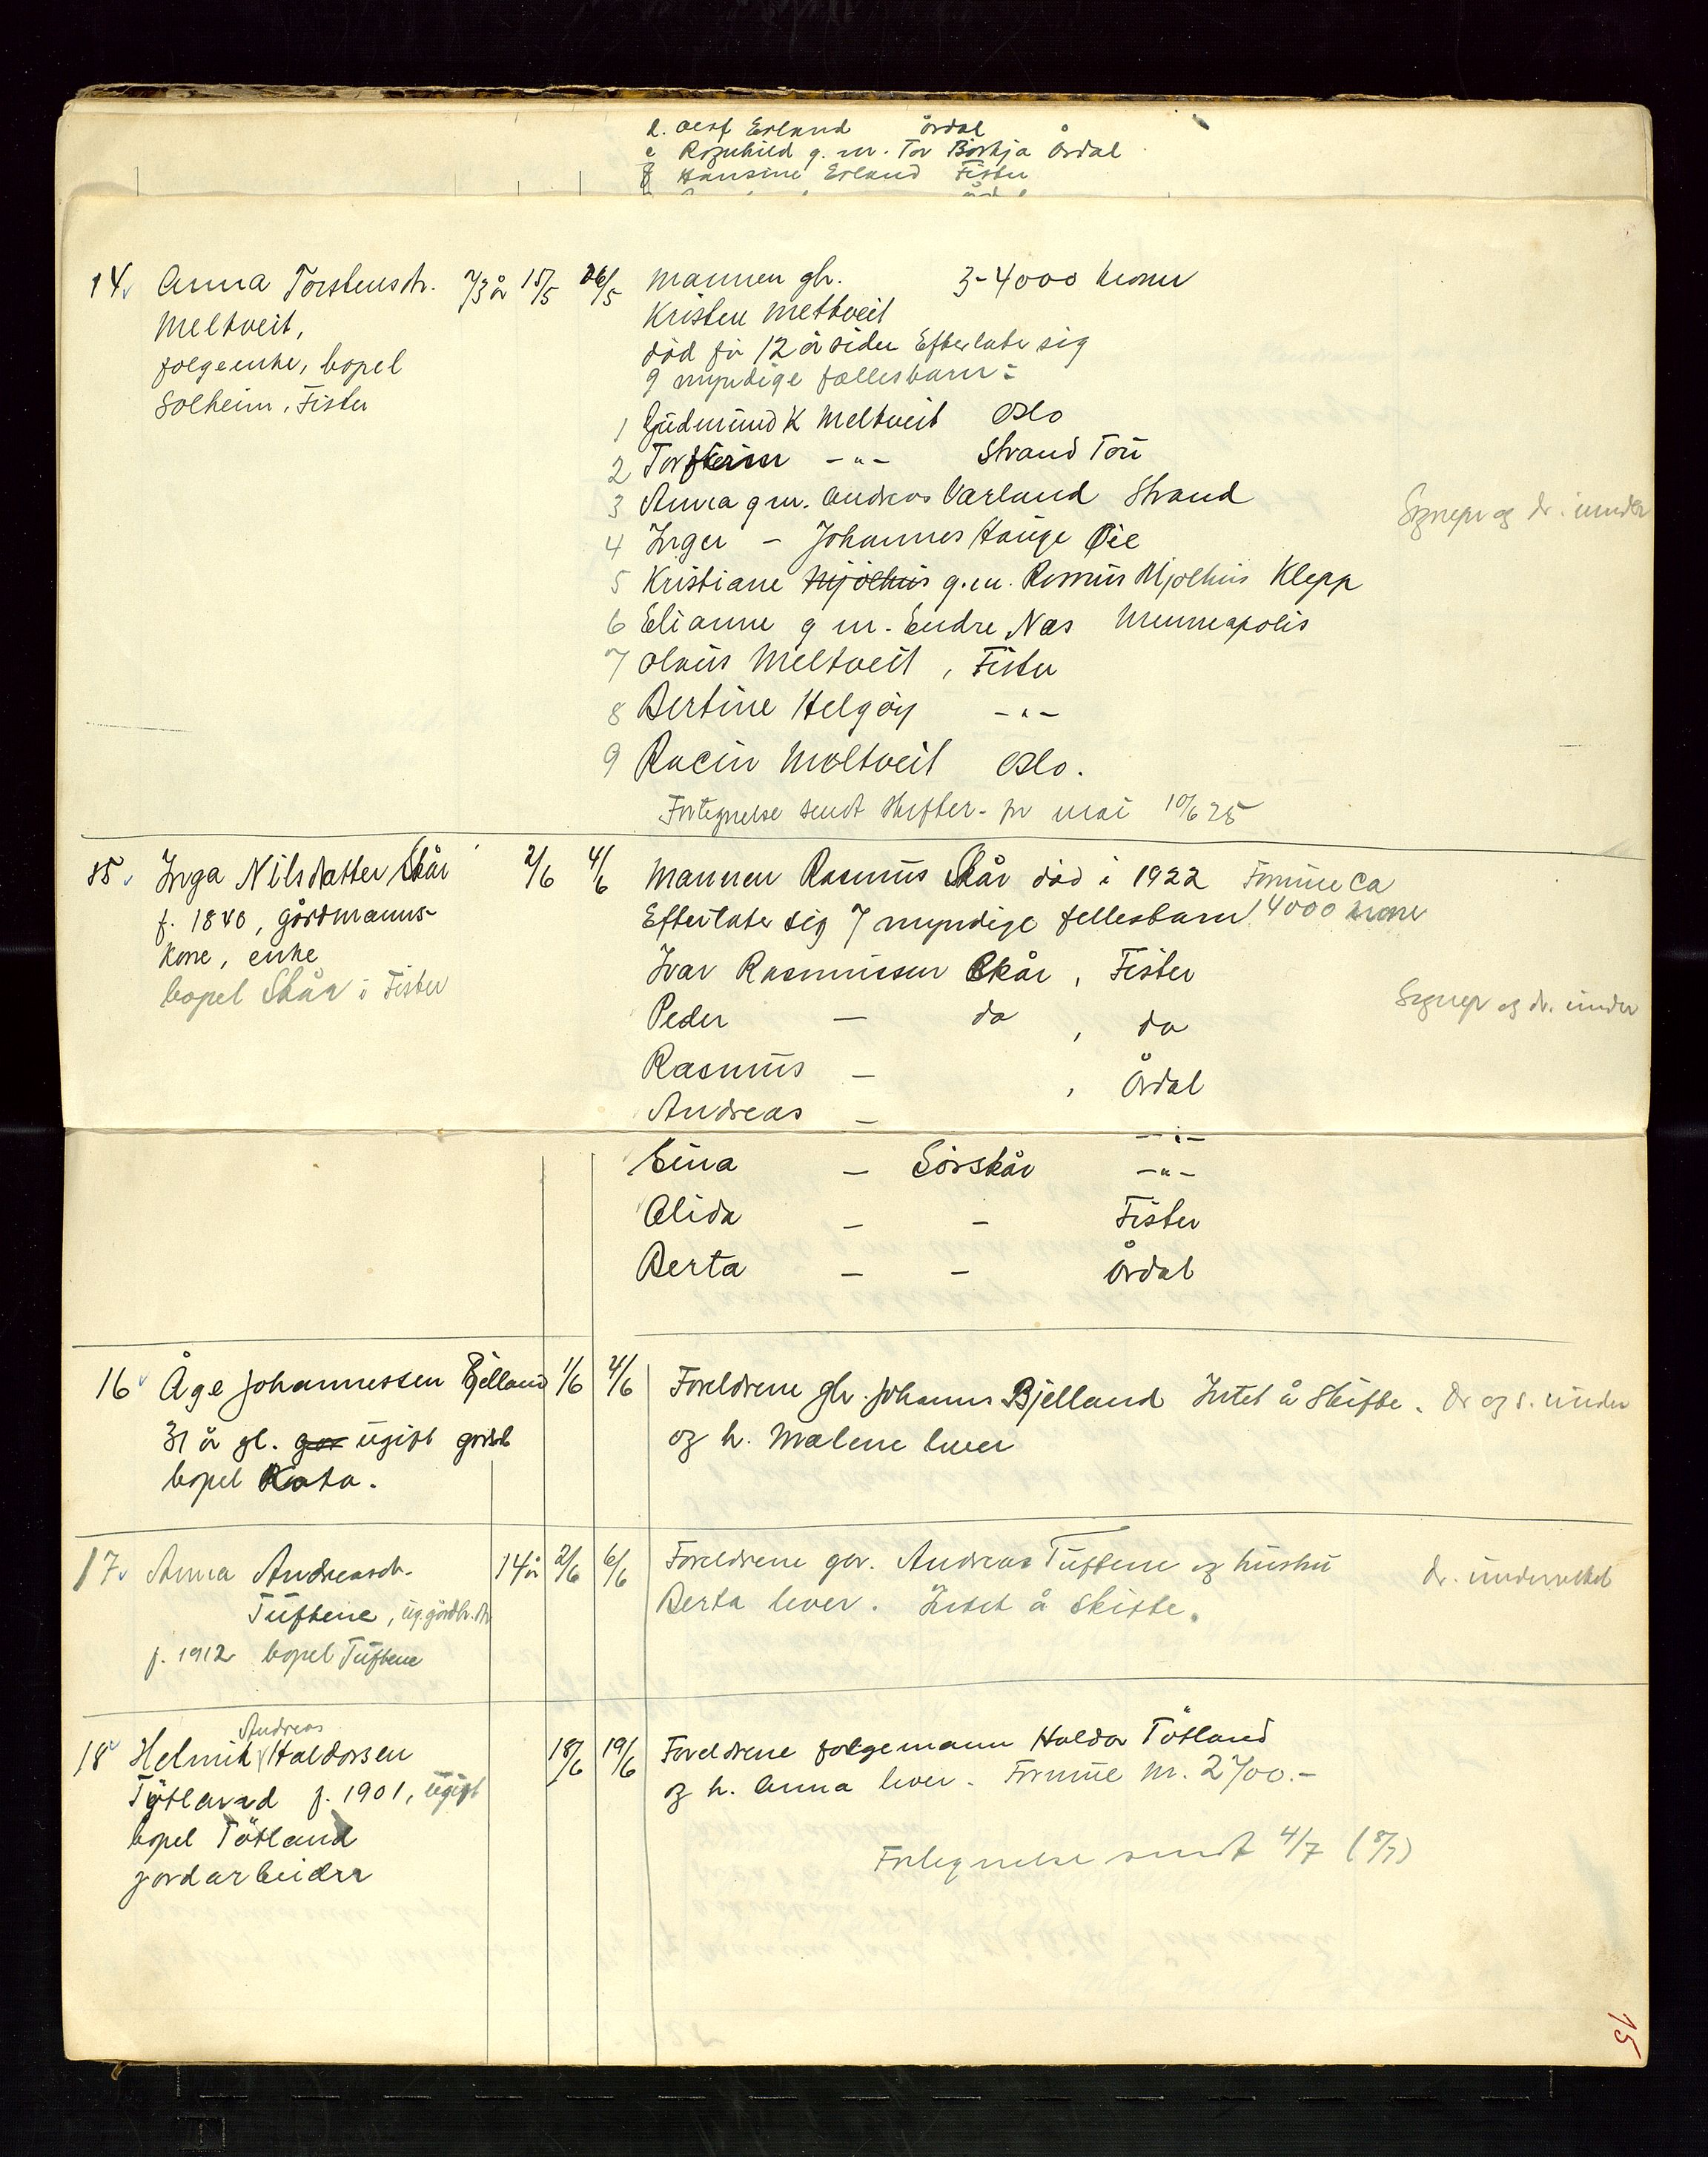 d. Olaf Erland Årdal
e Ragnhild g. m. Tor Børkja Årdal
f Hansine Erland Fister
14. Anna Torstensdr. 73 år 15/5 26/5 Mannen gbr. 3-4000 kroner
Meltveit, Kristen Meltveit
folgeenke, bopel død for 12 år siden Efterlater sig
Solheim, Fister 9 myndige fællesbarn:
1 Gudmund K Meltveit Oslo
2 Torstein -"- Strand Tou
3 Anna g m. Andreas Varland Strand Sognepr og dr. under
4 Inger - Johannes Hauge Øie
5 Kristiane Mjølhus g. m. Rasmus Mjølhus Klepp
6 Elianne g m. Endre Nes Minneapolis
7 Olaus Meltveit, Fister
8 Bertine Helgøy -"-
9 Racin Meltveit Oslo.
Fortegnelse sendt skifter. for mai 10/6 25
15. Inga Nilsdatter Skår 2/6 4/6 Mannen Rasmus Skår død i 1922 Formue ca
f. 1840, gårdmanns- Efterlater sig 7 myndige fellesbarn. 4000 krone
kone, enke Ivar Rasmussen Skår, Fister
bopel Skår i Fister Sognepr og dr. under
Peder - do, do
Rasmus - , Årdal
Andreas - -"-
Eina - Sørskår -"-
Alida - - Fister
Berta - - Årdal
16 Åge Johannessen Bjelland 1/6 4/6 Foreldrene gbr. Johannes Bjelland Intet å skifte. Dr og s. under
31 år gl. gar ugift gardb og h. Malene lever
bopel Kota.
17. Anna Andreasdr. 14 år 2/6 6/6 Foreldrene gbr. Andreas Tuftene og hustru dr. underrettet
Tuftene, ug. gårdbr. dr. Berta lever. Intet å skifte.
f. 1912 bopel Tuftene
18 Helmik Andreas Haldorsen 18/6 19/6 Foreldrene folgemann Haldor Tøtland
Tøtland f. 1901, ugift og h. Anna lever. Formue kr. 2700.-
bopel Tøtland
gardarbeider Fortegnelse sendt 4/7 (8/7)
15